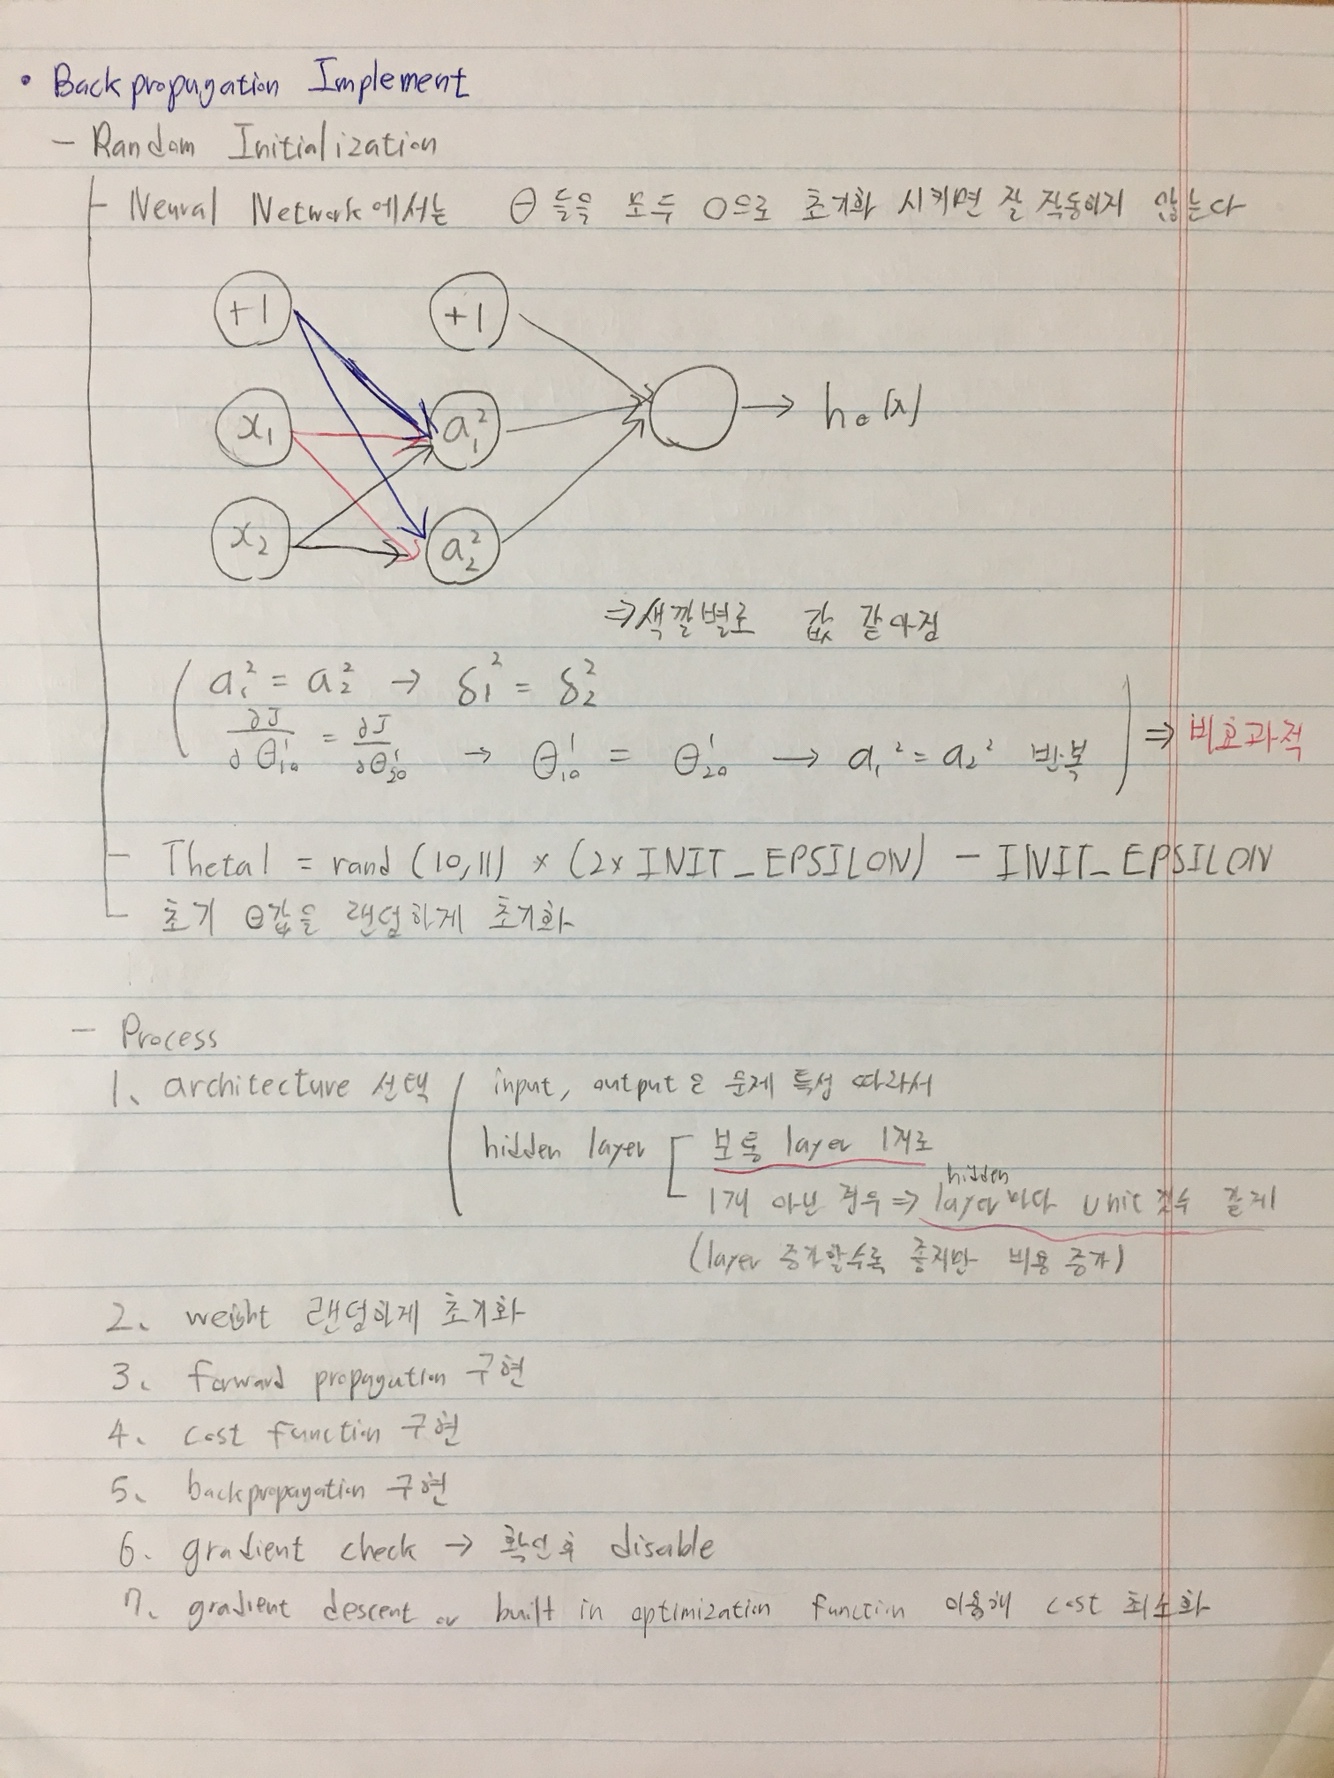 • Backpropagation Implement
- Random Initialization
- Neural Network에서는 θ들을 모두 0으로 초기화 시키면 잘 작동하지 않는다
+1 +1
x₁ a₁² → hθ(x)
x₂ a₂²
⇒ 색깔별로 값 같아짐
a₁² = a₂² → δ₁² = δ₂²
∂J/∂θ₁₀¹ = ∂J/∂θ₂₀¹ → θ₁₀¹ = θ₂₀¹ → a₁² = a₂² 반복 ⇒ 비효과적
- Theta1 = rand (10,11) × (2× INIT_EPSILON) - INIT_EPSILON
초기 θ값을 랜덤하게 초기화
- Process
1. architecture 선택 input, output은 문제 특성 따라서
hidden layer 보통 layer 1개로
1개 아닌 경우 ⇒ hidden layer마다 unit 갯수 같게
(layer 증가할수록 좋지만 비용 증가)
2. weight 랜덤하게 초기화
3. forward propagation 구현
4. cost function 구현
5. backpropagation 구현
6. gradient check → 확인 후 disable
7. gradient descent or built in optimization function 이용해 cost 최소화